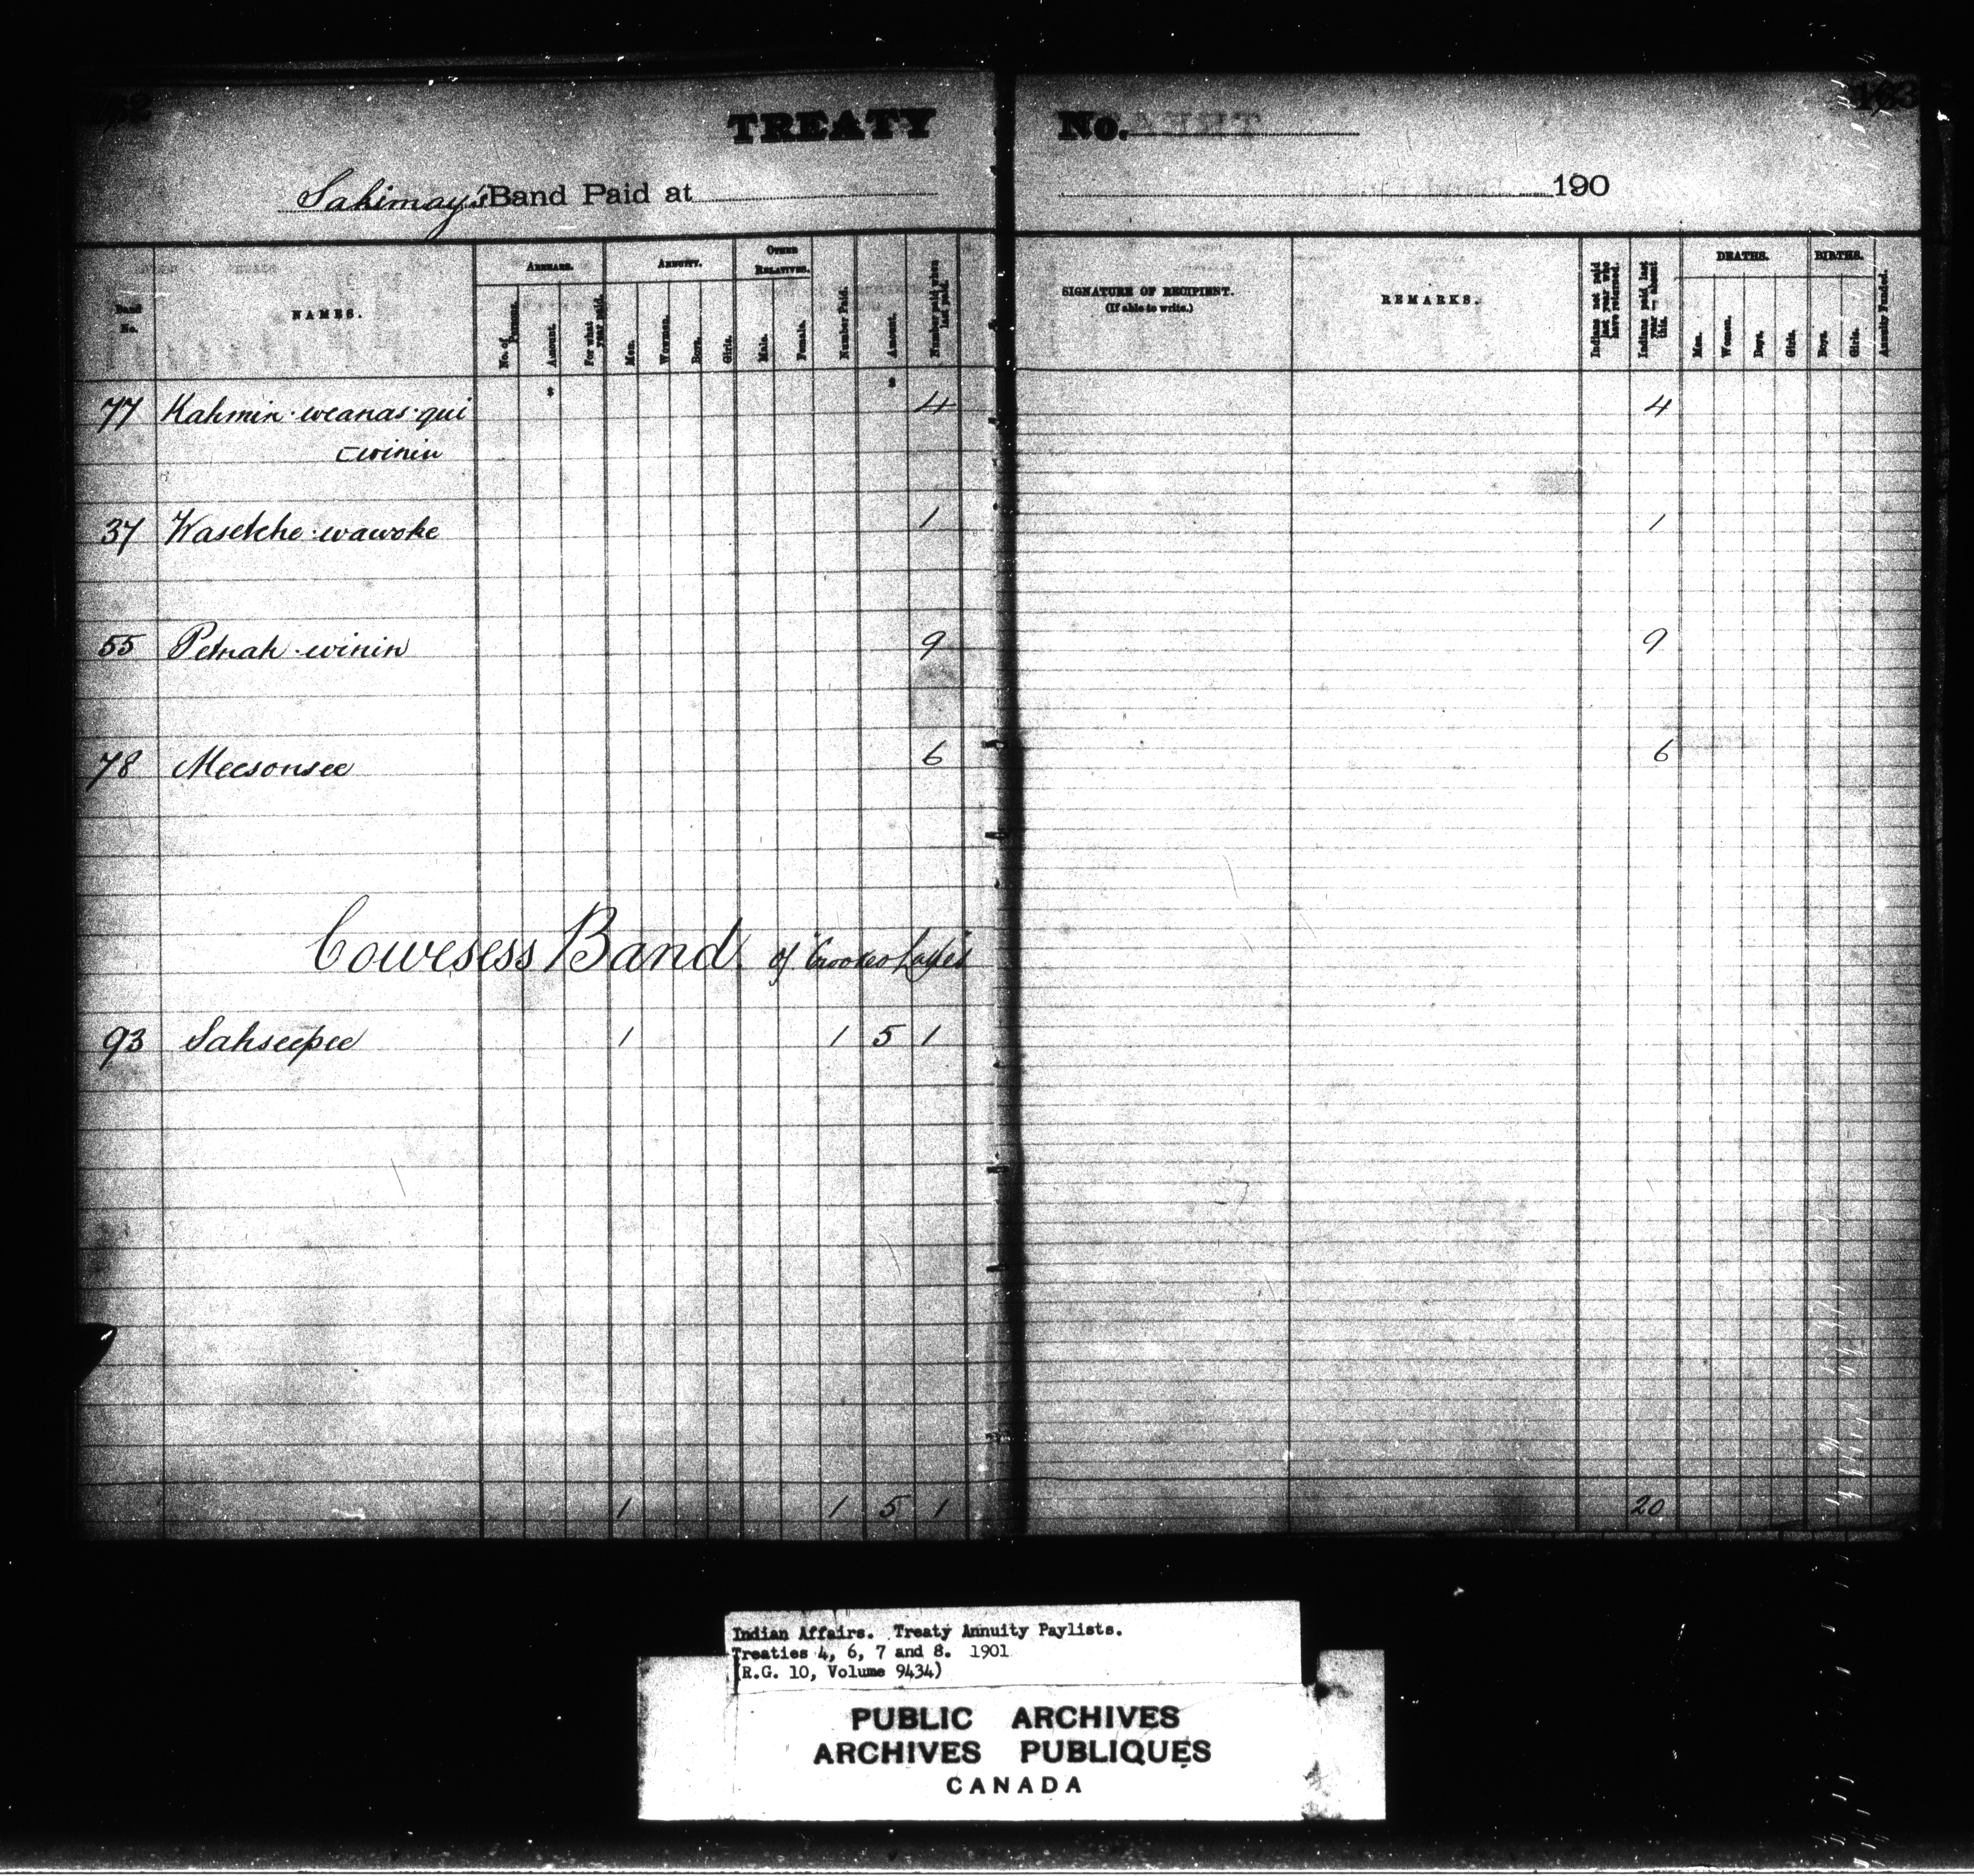 TREATY No.
163
Sakimay's Band Paid at 190
Band No.
NAMES.
ARREARS.
No. of Persons.
Amount.
For what year paid.
ANNUITY.
Men.
Women.
Boys.
Girls.
OTHER RELATIVES.
Male.
Female.
Number Paid.
Amount.
Number paid when last paid.
SIGNATURE OF RECIPIENT.
(If able to write.)
REMARKS.
Indians not paid last year who have returned.
Indians paid last year — absent this.
DEATHS.
Men.
Women.
Boys.
Girls.
BIRTHS.
Boys.
Girls.
Annuity Funded.
$ $
77 Kahmin·weanas·qui 4 4
winin
37 Wasetche·wawoke 1 1
55 Petnah·winin 9 9
78 Meesonsee 6 6
Cowesess Band of Crooked Lakes
93 Sahseepee 1 1 5 1
1 1 5 1 20
Indian Affairs. Treaty Annuity Paylists.
Treaties 4, 6, 7 and 8. 1901
(R.G. 10, Volume 9434)
PUBLIC ARCHIVES
ARCHIVES PUBLIQUES
CANADA